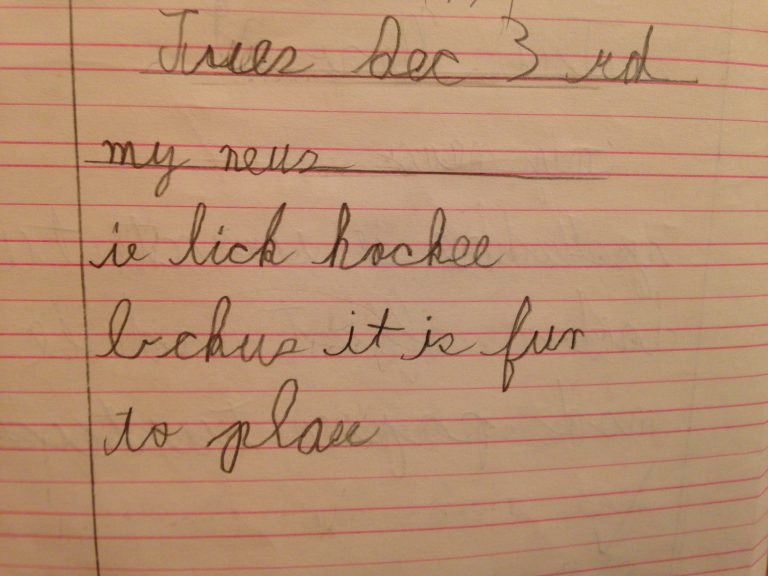 Tues Dec 3 rd
my news
ie lick hockee
bckus it is fun
to plae